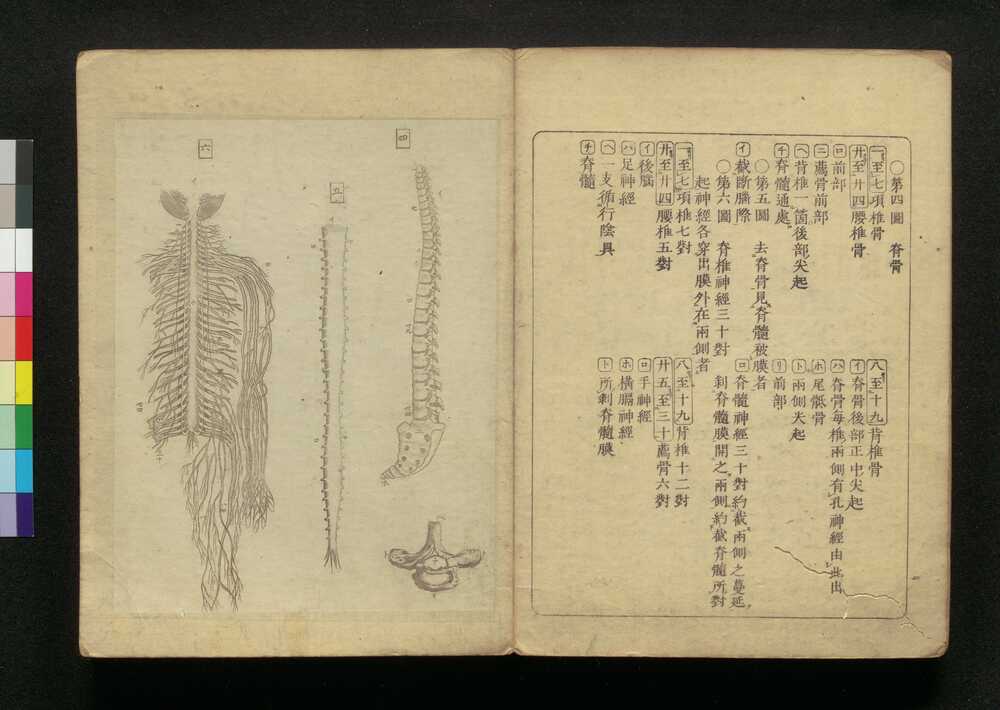 〇第四圖 脊骨
一至七項椎骨 八至十九背椎骨
廿至廿四腰椎骨 イ脊骨後部正中尖起
ロ前部 ハ脊骨每椎兩側有孔神經由此出
ニ薦骨前部 ホ尾骶骨
ヘ背椎一箇後部尖起 ト兩側尖起
チ脊髓通處 リ前部
〇第五圖 去脊骨見脊髓被膜者
イ截斷腦際 ロ脊髓神經三十對約截兩側之蔓延
〇第六圖 脊椎神經三十對 剥脊髓膜開之兩側約截脊髓所對
起神經各穿出膜外在兩側者
一至七項椎七對 八至十九背椎十二對
廿至廿四腰椎五對 廿五至三十薦骨六對
イ後腦 ロ手神經
ハ足神經 ホ橫膈神經
ヘ一支循行陰具 ト所剥脊髓膜
チ脊髓
四
五
六